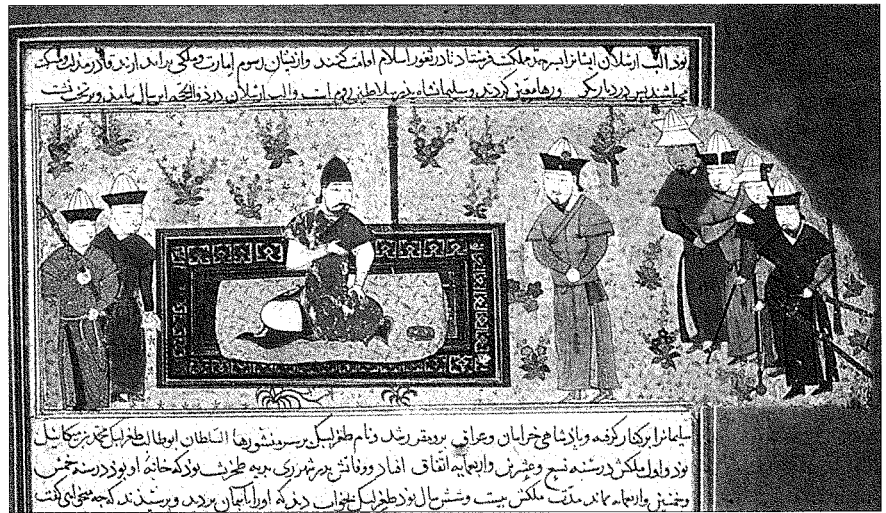 بود الب ارسلان ایشانرا بسرحد مملکت فرستاد تا در ثغور اسلام اقامت کنند و ازیشان رسوم امارت و ملکی براند
پس در دیار بکر و رها مقیم کردند و سلیمانشاه پدر سلاطین روم است و الب ارسلان در ذو الحجه
سلیمانرا برکنار گرفته و پادشاهی خراسان و عراق برو مقرر شد و نام طغرلبک بر سر منشورها السلطان ابوطالب طغرلبک محمد بن میکاییل
بود و اول ملکش در سنه تسع و عشرین و اربعمایه اتفاق افتاد و وفاتش بدر شهر ری بدیه طجرشت بود که خانهٔ او بود در سنه خمس
و خمسین و اربعمایه مدت ملکش بیست و شش سال بود طغرلبک بخواب دید که او را باسمان بردند و پرسیدند که چه میخواهی گفت